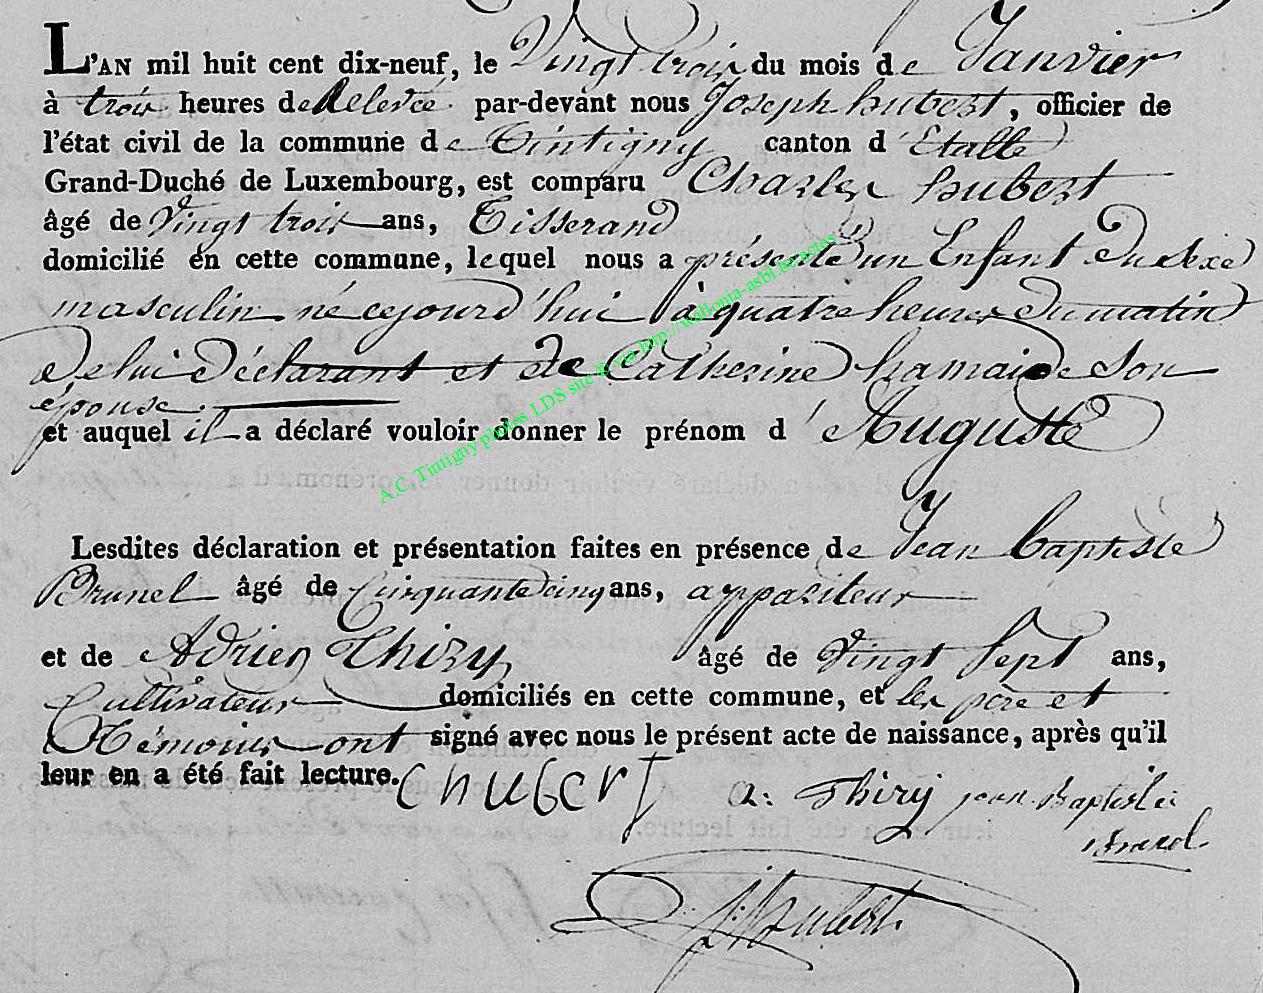 L'AN mil huit cent dix-neuf, le Vingt trois du mois de Janvier
à trois heures de Relevée par-devant nous Joseph hubert, officier de
l'état civil de la commune de Tintigny canton d'Etalle
Grand-Duché de Luxembourg, est comparu Charles hubert
âgé de Vingt trois ans, Tisserand
domicilié en cette commune, lequel nous a présenté un Enfant du sexe
masculin né cejourd'hui à quatre heures du matin
de lui déclarant et de Catherine hamaide son
épouse.
et auquel il a déclaré vouloir donner le prénom d'Auguste
A.C. Tintigny photos LDS site & via http://wallonia-asbl.be/actes
Lesdites déclaration et présentation faites en présence de Jean baptiste
Brunel âgé de Cinquante cinq ans, appariteur
et de Adrien Thiry âgé de Vingt Sept ans,
Cultivateur domiciliés en cette commune, et les père et
Témoins ont signé avec nous le présent acte de naissance, après qu'il
leur en a été fait lecture. C hubert a: Thiry jean Baptiste
J: hubert